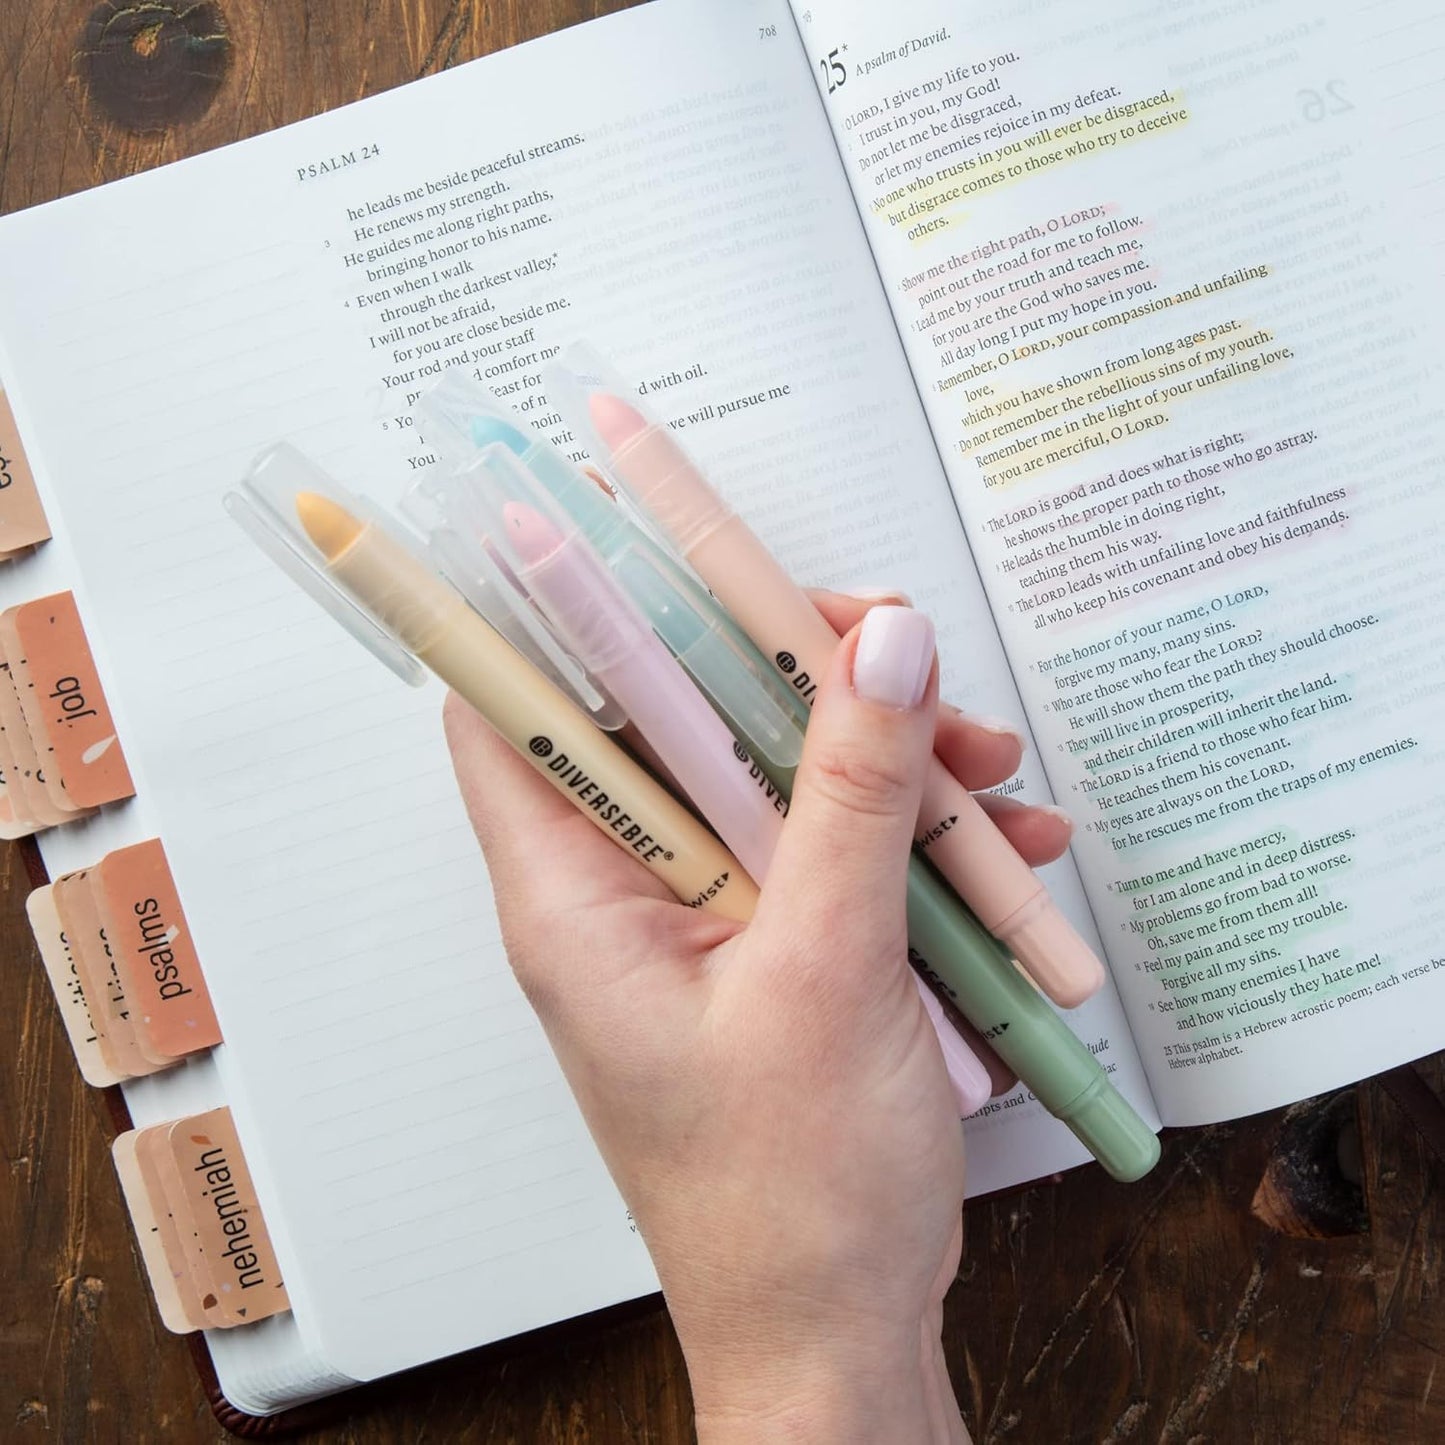 PSALM 24
708
he leads me beside peaceful streams.
3 He renews my strength.
He guides me along right paths,
bringing honor to his name.
4 Even when I walk
through the darkest valley,*
I will not be afraid,
for you are close beside me.
Your rod and your staff
comfort me
5
feast for
with oil.
You
will pursue me
25*
A psalm of David.
O LORD, I give my life to you.
I trust in you, my God!
Do not let me be disgraced,
or let my enemies rejoice in my defeat.
No one who trusts in you will ever be disgraced,
but disgrace comes to those who try to deceive
others.
Show me the right path, O LORD;
point out the road for me to follow.
Lead me by your truth and teach me,
for you are the God who saves me.
All day long I put my hope in you.
Remember, O LORD, your compassion and unfailing
love,
which you have shown from long ages past.
Do not remember the rebellious sins of my youth.
Remember me in the light of your unfailing love,
for you are merciful, O LORD.
The LORD is good and does what is right;
he shows the proper path to those who go astray.
He leads the humble in doing right,
teaching them his way.
The LORD leads with unfailing love and faithfulness
all who keep his covenant and obey his demands.
For the honor of your name, O LORD,
forgive my many, many sins.
Who are those who fear the LORD?
He will show them the path they should choose.
They will live in prosperity,
and their children will inherit the land.
The LORD is a friend to those who fear him.
He teaches them his covenant.
My eyes are always on the LORD,
for he rescues me from the traps of my enemies.
Turn to me and have mercy,
for I am alone and in deep distress.
My problems go from bad to worse.
Oh, save me from them all!
Feel my pain and see my trouble.
Forgive all my sins.
See how many enemies I have
and how viciously they hate me!
25 This psalm is a Hebrew acrostic poem; each verse be
Hebrew alphabet.
job
psalms
nehemiah
DIVERSEBEE®